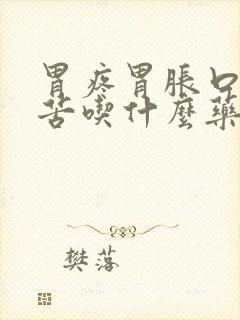 胃疼胃脹口
苦喫什麼藥
樊落